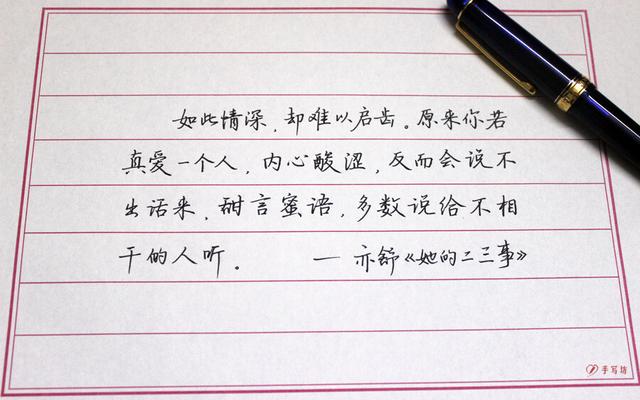 如此情深，却难以启齿。原来你若
真爱一个人，内心酸涩，反而会说不
出话来，甜言蜜语，多数说给不相
干的人听。 — 亦舒《她的二三事》
手写坊